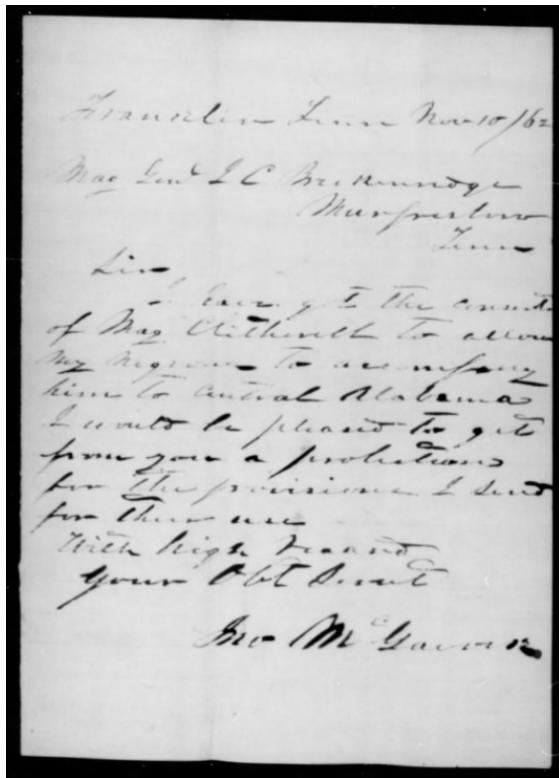 Franklin Tenn Nov 10/62
Maj Genl J C Breckenridge
Murfresboro
Tenn
Sir
I have got the consent
of Maj Clitherall to allow
my negroes to accompany
him to Central Alabama
I would be pleased to get
from you a protection
for the provisions I send
for their use
With high regard
your Obt Servt
Jno McGavock